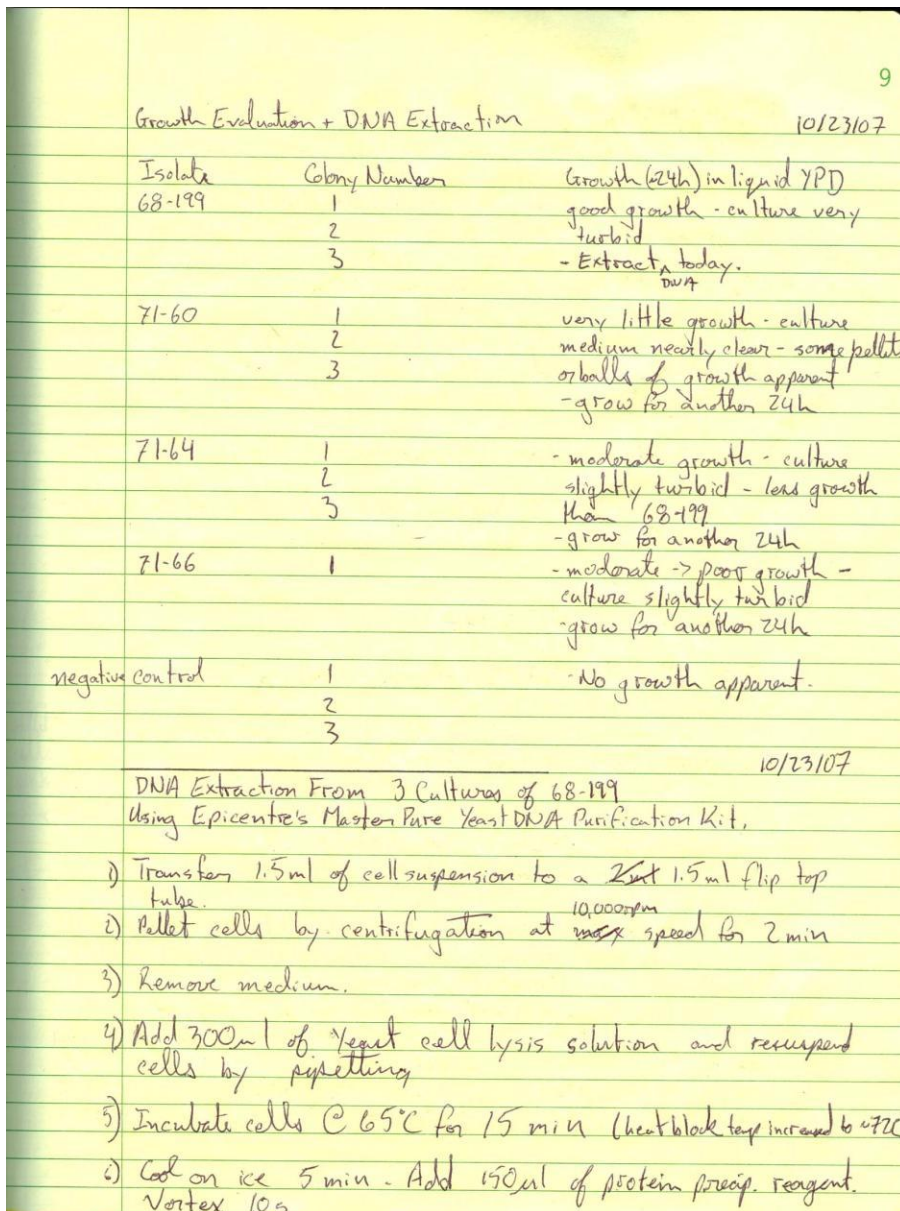 9
Growth Evaluation + DNA Extraction 10/23/07
Isolate Colony Number Growth (~24h) in liquid YPD
68-199 1 good growth - culture very
2 turbid
3 - Extract DNA today.
71-60 1 very little growth - culture
2 medium nearly clear - some pellet
3 or balls of growth apparent
- grow for another 24h
71-64 1 - moderate growth - culture
2 slightly turbid - less growth
3 than 68-199
- grow for another 24h
71-66 1 - moderate -> poor growth -
culture slightly turbid
- grow for another 24h
negative control 1 - No growth apparent.
2
3
10/23/07
DNA Extraction From 3 Cultures of 68-199
Using Epicentre's Master Pure Yeast DNA Purification Kit.
1) Transfer 1.5ml of cell suspension to a 2ml 1.5ml flip top
tube.
10,000rpm
2) Pellet cells by centrifugation at max speed for 2 min
3) Remove medium.
4) Add 300µl of Yeast cell lysis solution and resuspend
cells by pipetting
5) Incubate cells @ 65°C for 15 min (heat block temp increased to ~72C
6) Cool on ice 5 min - Add 150µl of protein precip. reagent.
Vortex 10s